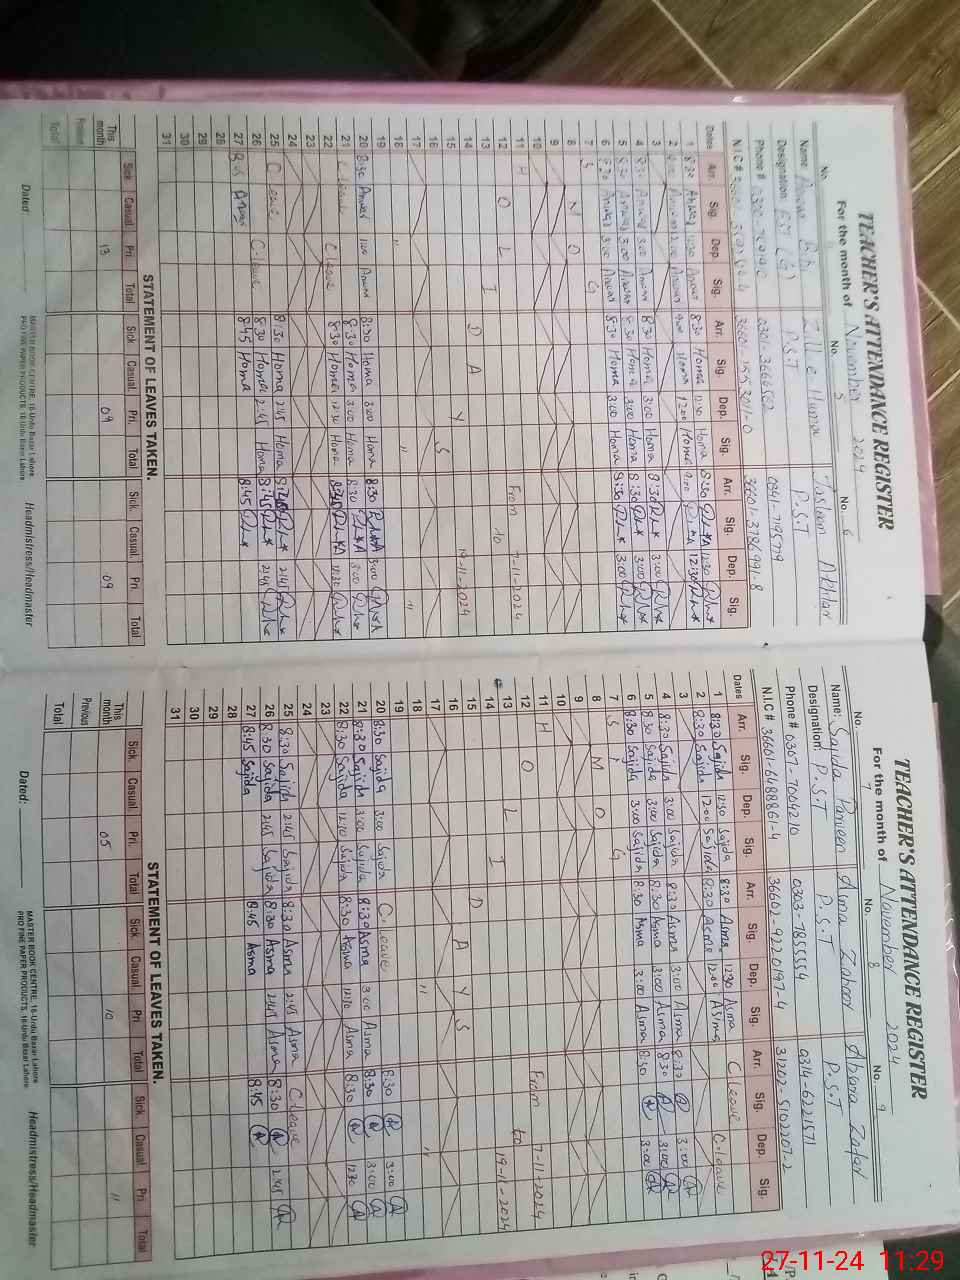 TEACHER'S ATTENDANCE REGISTER
For the month of November 2024
No. No. 5 No. 6
Name Zill e Huma Tasleem Akhtar
Designation: EST (G) P.S.T P.S.T
Phone # 0301-3666562 0341-7195719
N.I.C # 36601-3786991-8
Dates Arr. Sig. Dep. Sig. Arr. Sig. Dep. Sig. Arr. Sig. Dep. Sig.
1 8:30 Anwar 12:30 Anwar 8:30 Homa 12:30 Homa 8:30 12:30
2 9:00 Anwar 12:00 Anwar 9:00 Homa 12:00 Homa 9:00 12:30
3
4 8:30 Anwar 3:00 Anwar 8:30 Homa 3:00 Homa 8:30 3:00
5 8:30 Anwar 3:00 Anwar 8:30 Homa 3:00 Homa 8:30 3:00
6 8:30 Anwar 3:00 Anwar 8:30 Homa 3:00 Homa 8:30 3:00
7 S M O G
8
9
10
11 H O L I D A Y S From 7-11-2024
12 to
13
14 19-11-2024
15
16
17
18 " " "
19
20 8:30 Anwar 3:00 Anwar 8:30 Homa 3:00 Homa 8:30 3:00
21 C leave C leave 8:30 Homa 3:00 Homa 8:30 3:00
22 8:30 Homa 12:30 Homa 12:30
23
24
25 C leave C-leave 8:30 Homa 2:45 Homa 2:45
26 8:30 Homa 2:45 Homa 8:45 2:45
27 8:45 Anwar 8:45 Homa 8:45
28
28
29
30
31
STATEMENT OF LEAVES TAKEN.
Sick Casual Pri Total Sick. Casual. Pri. Total Sick. Casual. Pri Total
This month 13 09 09
Previous
Total
Dated MASTER BOOK CENTRE, 16-Urdu Bazar Lahore Headmistress/Headmaster
PRO FINE PAPER PRODUCTS, 16-Urdu Bazar Lahore
TEACHER'S ATTENDANCE REGISTER
For the month of November 2024
No. 7 No. 8 No. 9
Name: Sajida Parveen Asma Zahoor Zafar
Designation: P.S.T P.S.T P.S.T
Phone # 0307-7004210 0303-7855554 0314-6221571
N.I.C # 36601-6488861-4 36602-9220197-4 31202-5102207-2
Dates Arr. Sig. Dep. Sig. Arr. Sig. Dep. Sig. Arr. Sig. Dep. Sig.
1 8:30 Sajida 12:30 Sajida 8:30 Asma 12:30 Asma C leave C-leave
2 8:30 Sajida 12:00 Sajida 8:30 Asma 12:00 Asma
3
4 8:30 Sajida 3:00 Sajida 8:30 Asma 3:00 Asma 8:30 3:00
5 8:30 Sajida 3:00 Sajida 8:30 Asma 3:00 Asma 8:30 3:00
6 8:30 Sajida 3:00 Sajida 8:30 Asma 3:00 Asma 8:30 3:00
7 S M O G
8
9
10
11 H O L I D A Y S From 7-11-2024
12 to
13 19-11-2024
14
15
16
17
18 " "
19
20 8:30 Sajida 3:00 Sajida C.leave 8:30 3:00
21 8:30 Sajida 3:00 Sajida 8:30 Asma 3:00 Asma 8:30 3:00
22 8:30 Sajida 12:10 Sajida 8:30 Asma 12:10 Asma 8:30 12:30
23
24
25 8:30 Sajida 2:45 Sajida 8:30 Asma 2:45 Asma C.leave
26 8:30 Sajida 2:45 Sajida 8:30 Asma 2:45 Asma 8:30 2:45
27 8:45 Sajida 8:45 Asma 8:45
28
29
30
31
STATEMENT OF LEAVES TAKEN.
Sick. Casual. Pri. Total Sick. Casual. Pri Total Sick. Casual Pri Total
This month 05 10 11
Previous
Total
Dated: MASTER BOOK CENTRE, 16-Urdu Bazar Lahore Headmistress/Headmaster
PRO FINE PAPER PRODUCTS, 16-Urdu Bazar Lahore
27-11-24 11:29